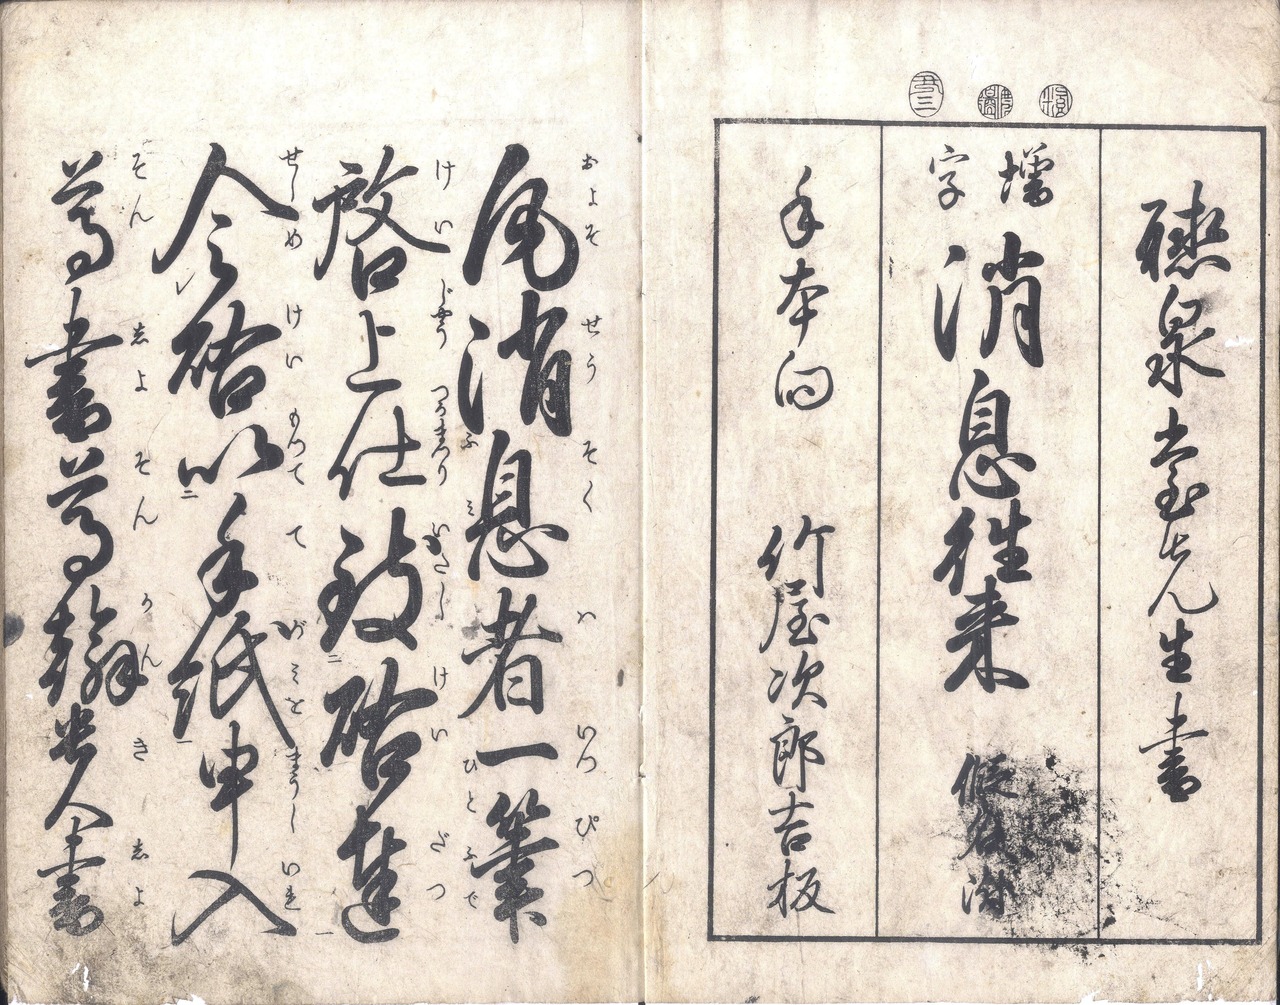 泉堂先生書
増字
消息往来
假名附
手本向
竹屋次郎吉板
凢消息者一筆
およそせうそくハいつぴつ
ふミ
ひとふで
啓上仕致啓達
けいじやうつかまつりいたしけいだつ
令啓以手紙申入
せしめけいもつててがミをまうしいれ
尊書尊翰貴書
そんしよそんかんきしよ